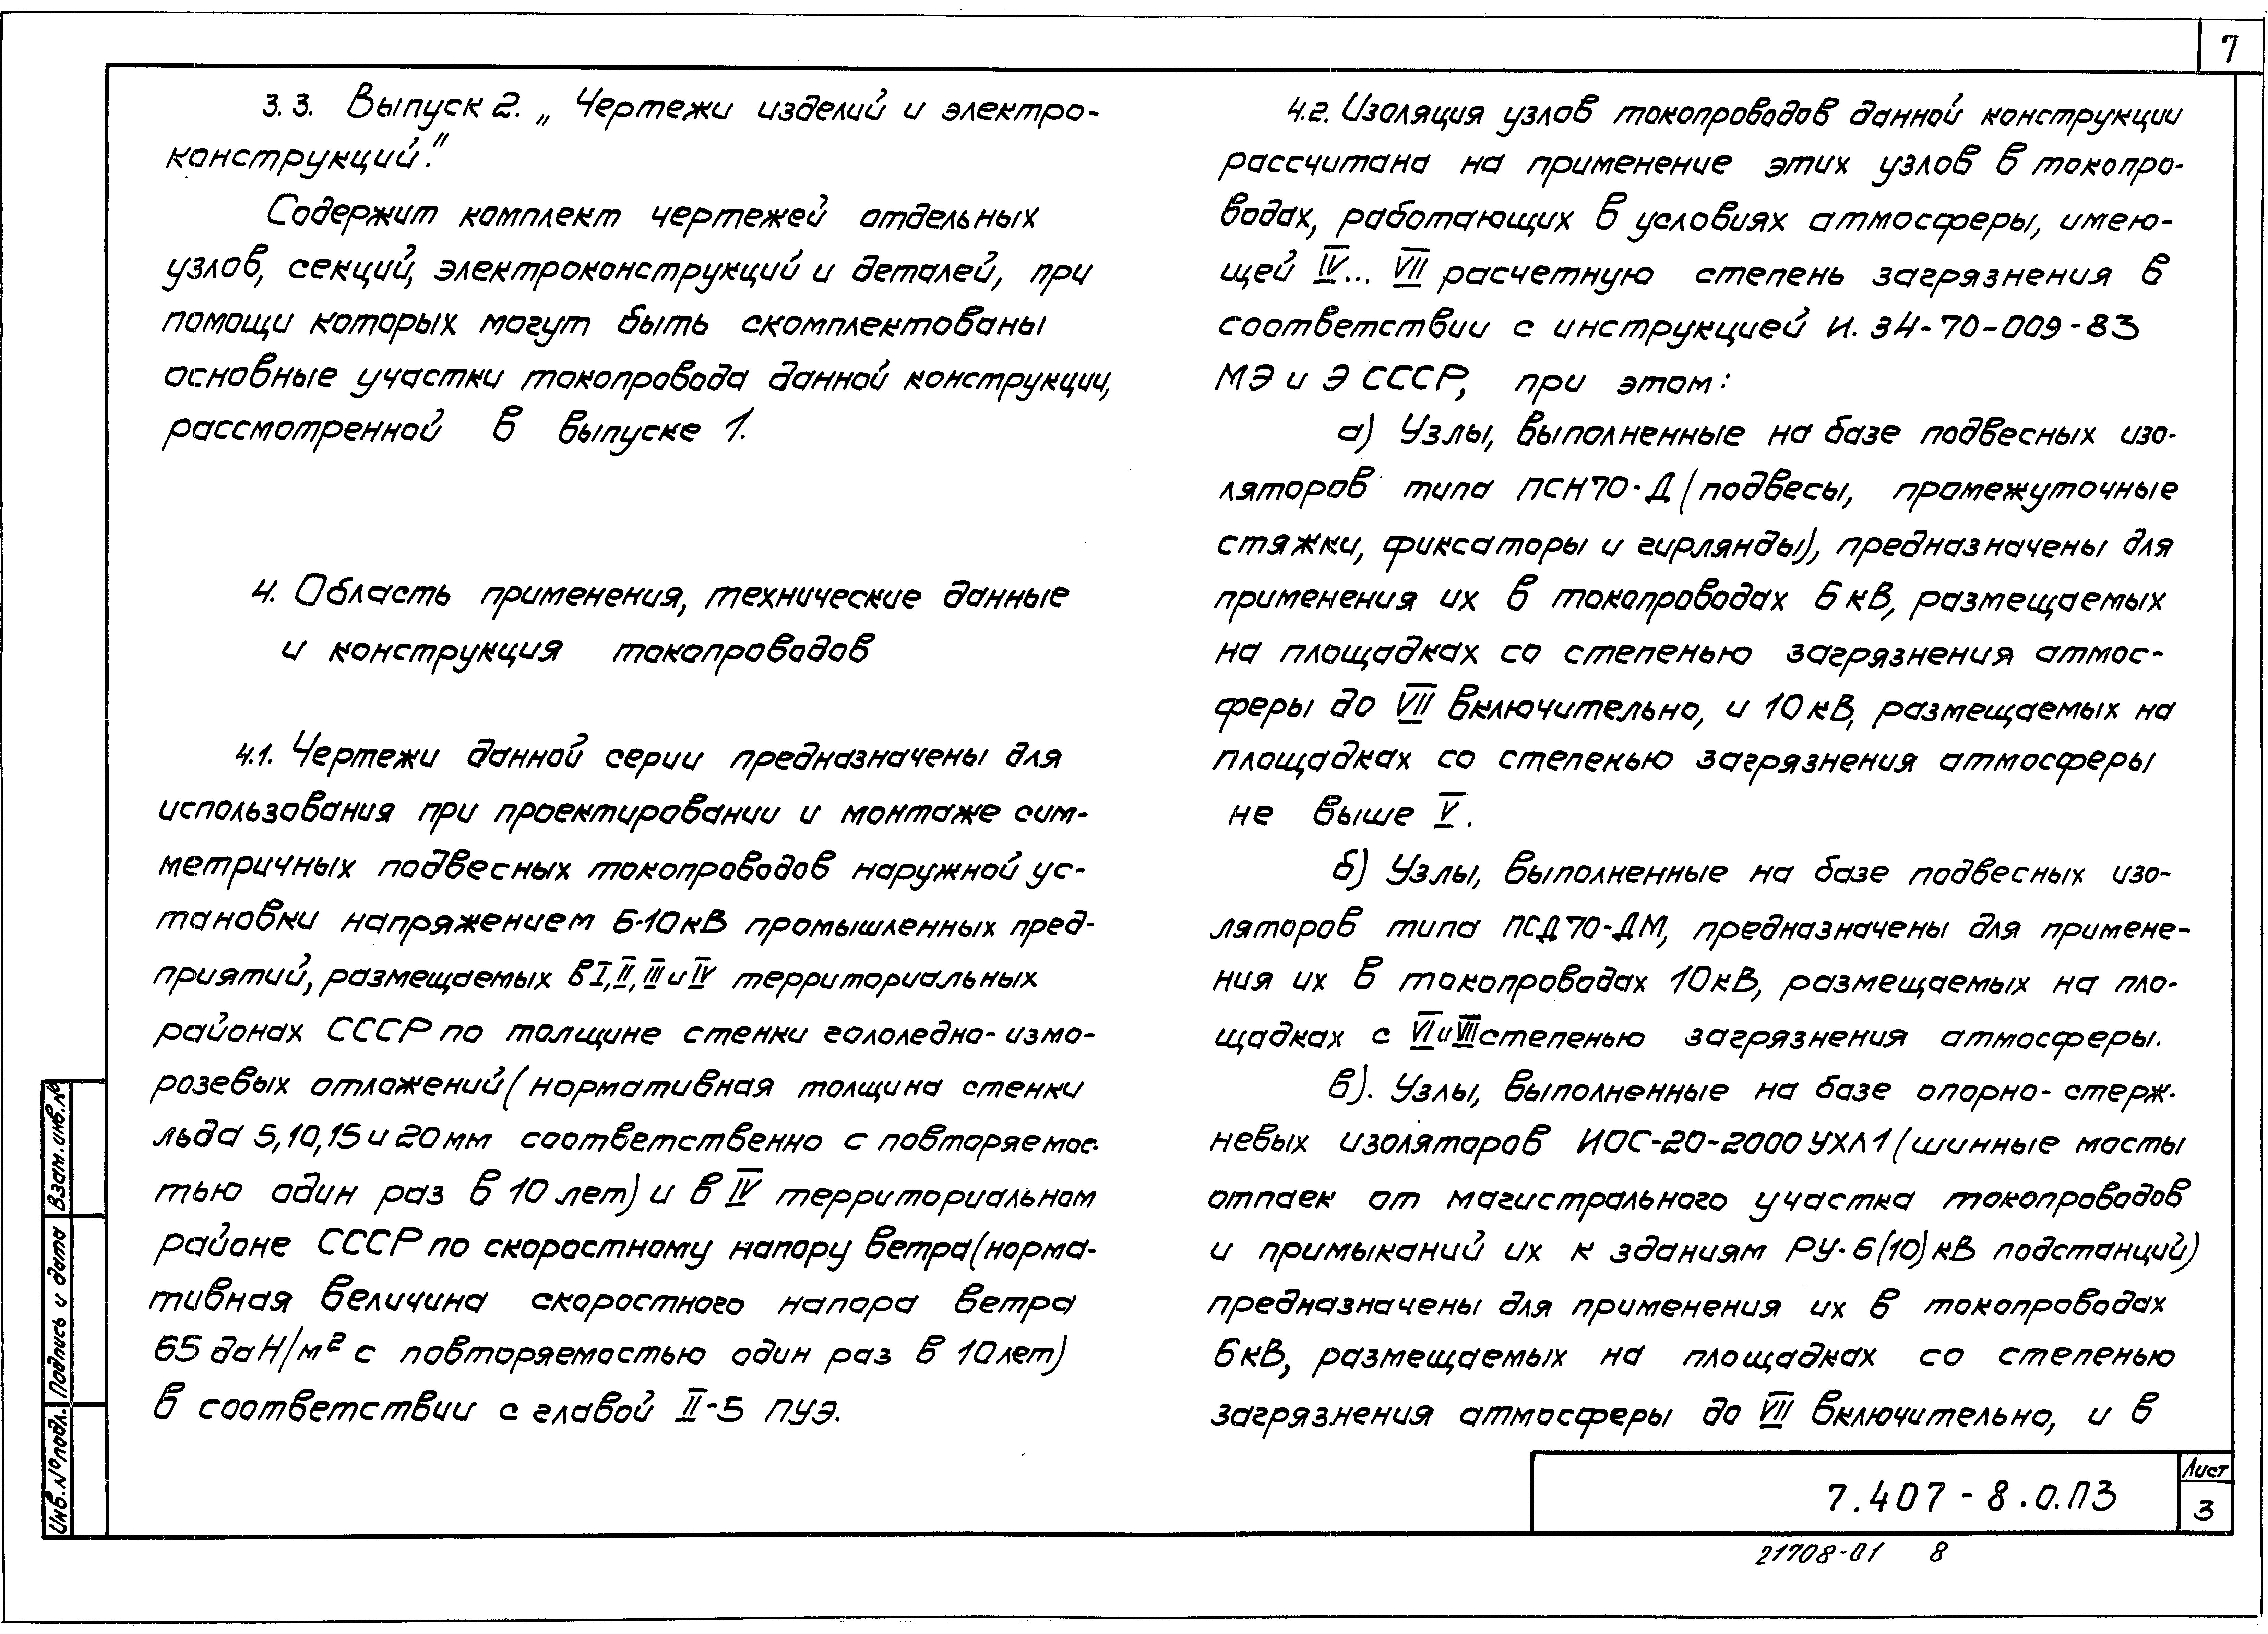 7
3.3. Выпуск 2. „Чертежи изделий и электро-
конструкций."
Содержит комплект чертежей отдельных
узлов, секций, электроконструкций и деталей, при
помощи которых могут быть скомплектованы
основные участки токопровода данной конструкции,
рассмотренной в выпуске 1.
4. Область применения, технические данные
и конструкция токопроводов
4.1. Чертежи данной серии предназначены для
использования при проектировании и монтаже сим-
метричных подвесных токопроводов наружной ус-
тановки напряжением 6-10кВ промышленных пред-
приятий, размещаемых в I, II, III и IV территориальных
районах СССР по толщине стенки гололедно-измо-
розевых отложений (нормативная толщина стенки
льда 5, 10, 15 и 20 мм соответственно с повторяемос-
тью один раз в 10 лет) и в IV территориальном
районе СССР по скоростному напору ветра (норма-
тивная величина скоростного напора ветра
65 даН/м² с повторяемостью один раз в 10 лет)
в соответствии с главой II-5 ПУЭ.
4.2. Изоляция узлов токопроводов данной конструкции
рассчитана на применение этих узлов в токопро-
водах, работающих в условиях атмосферы, имею-
щей IV... VII расчетную степень загрязнения в
соответствии с инструкцией И. 34-70-009-83
МЭ и Э СССР, при этом:
а) Узлы, выполненные на базе подвесных изо-
ляторов типа ПСН70-Д (подвесы, промежуточные
стяжки, фиксаторы и гирлянды), предназначены для
применения их в токопроводах 6кВ, размещаемых
на площадках со степенью загрязнения атмос-
феры до VII включительно, и 10кВ, размещаемых на
площадках со степенью загрязнения атмосферы
не выше V.
б) Узлы, выполненные на базе подвесных изо-
ляторов типа ПСД70-ДМ, предназначены для примене-
ния их в токопроводах 10кВ, размещаемых на пло-
щадках с VI и VII степенью загрязнения атмосферы.
в). Узлы, выполненные на базе опорно-стерж-
невых изоляторов ИОС-20-2000 УХЛ1 (шинные мосты
отпаек от магистрального участка токопроводов
и примыканий их к зданиям РУ-6(10)кВ подстанций)
предназначены для применения их в токопроводах
6кВ, размещаемых на площадках со степенью
загрязнения атмосферы до VII включительно, и в
Инв. № подл.
Подпись и дата
Взам. инв. №
7.407-8.0.ПЗ
Лист
3
21708-01 8